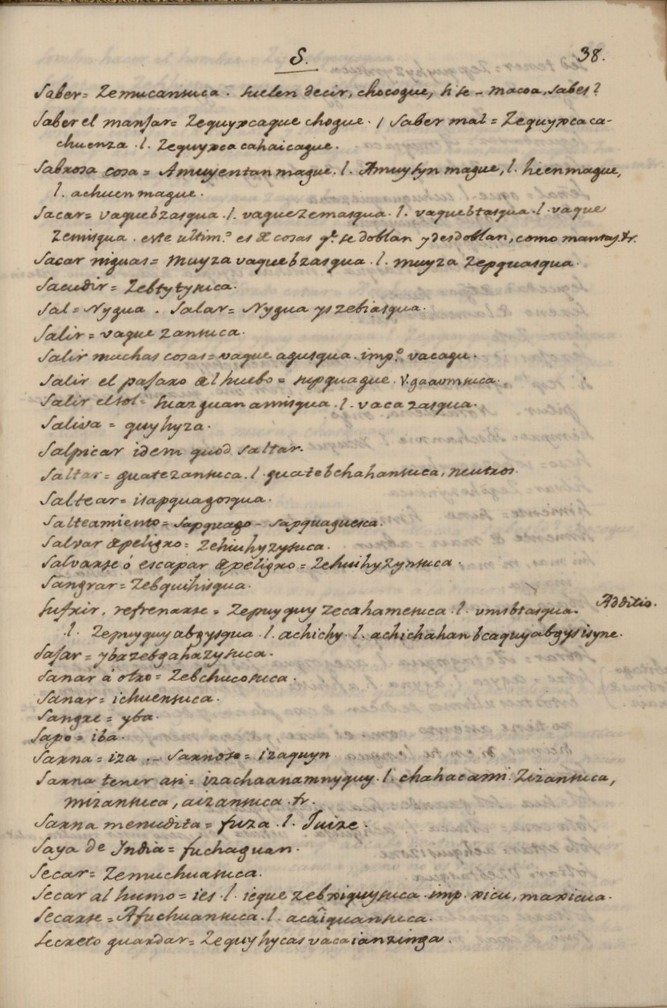 S. 38.
Saber = Zemucansuca. suelen decir, chocogue, hi se - macoa, sabes?
Saber el manjar = Zequyxcaque chogue. / Saber mal = Zequyxca ca-
chuenza .l. Zequyxca cahaicague.
Sabrosa cosa = Amuyentan mague. l. Amuytyn mague, l. hicenmague,
l. achuen mague.
Sacar = vaquebzasqua .l. vaquezemasqua .l. vaquebtasqua .l. vaque
zemisqua. este ultim.º es de cosas q.e se doblan y desdoblan, como mantas, &r.
Sacar niguas = muyza vaquebzasqua .l. muyza zepquasqua.
Sacudir = Zebtytysuca.
Sal = Nygua. Salar = Nygua ys zebiasqua.
Salir = vaque zansuca.
Salir muchas cosas = vaque agusqua. imp.º vacagu.
Salir el pasaxo del huebo = supquague. V. gaaomsuca.
Salir el sol = suaz guan amisqua .l. vaca zasqua.
Saliva = quyhyza.
Salpicar idem quod saltar.
Saltar = guatezansuca .l. guatebchahansuca, neutros.
Saltear = isapquagosqua.
Salteamiento = sapquago - sapquaguesca.
Salvar de peligro = Zehiuhyzysuca.
Salvarse ó escapar de peligro = Zehuihyzynsuca
Sangrar = Zebquihisqua.
Sufrir, refrenarse = Zepuyquy zecahamesuca .l. umsbtasqua. Additio.
.l. Zepuyquy abgysqua .l. achichy .l. achichahan bcaquy abgys isyne.
Sajar = ybazebgahazysuca.
Sanar a otro = Zebchucosuca.
Sanar = ichuensuca.
Sangre = yba.
Sapo = iba.
Sarna = iza. - Sarnoso = izaquyn
Sarna tener asi = izachaanamnyquy .l. chahacami. Zizansuca,
mizansuca, aizansuca. &r.
Sarna menudita = fuza .l. Tuize.
Saya de India = fuchaguan.
Secar = Zemuchuasuca.
Secar al humo = ies .l. ieque zebxiquysuca - imp. xicu, maxicua.
Secarse = Afuchuansuca .l. acaiquansuca.
Secreto guardar = Zequyhycas vaca ianzinga.